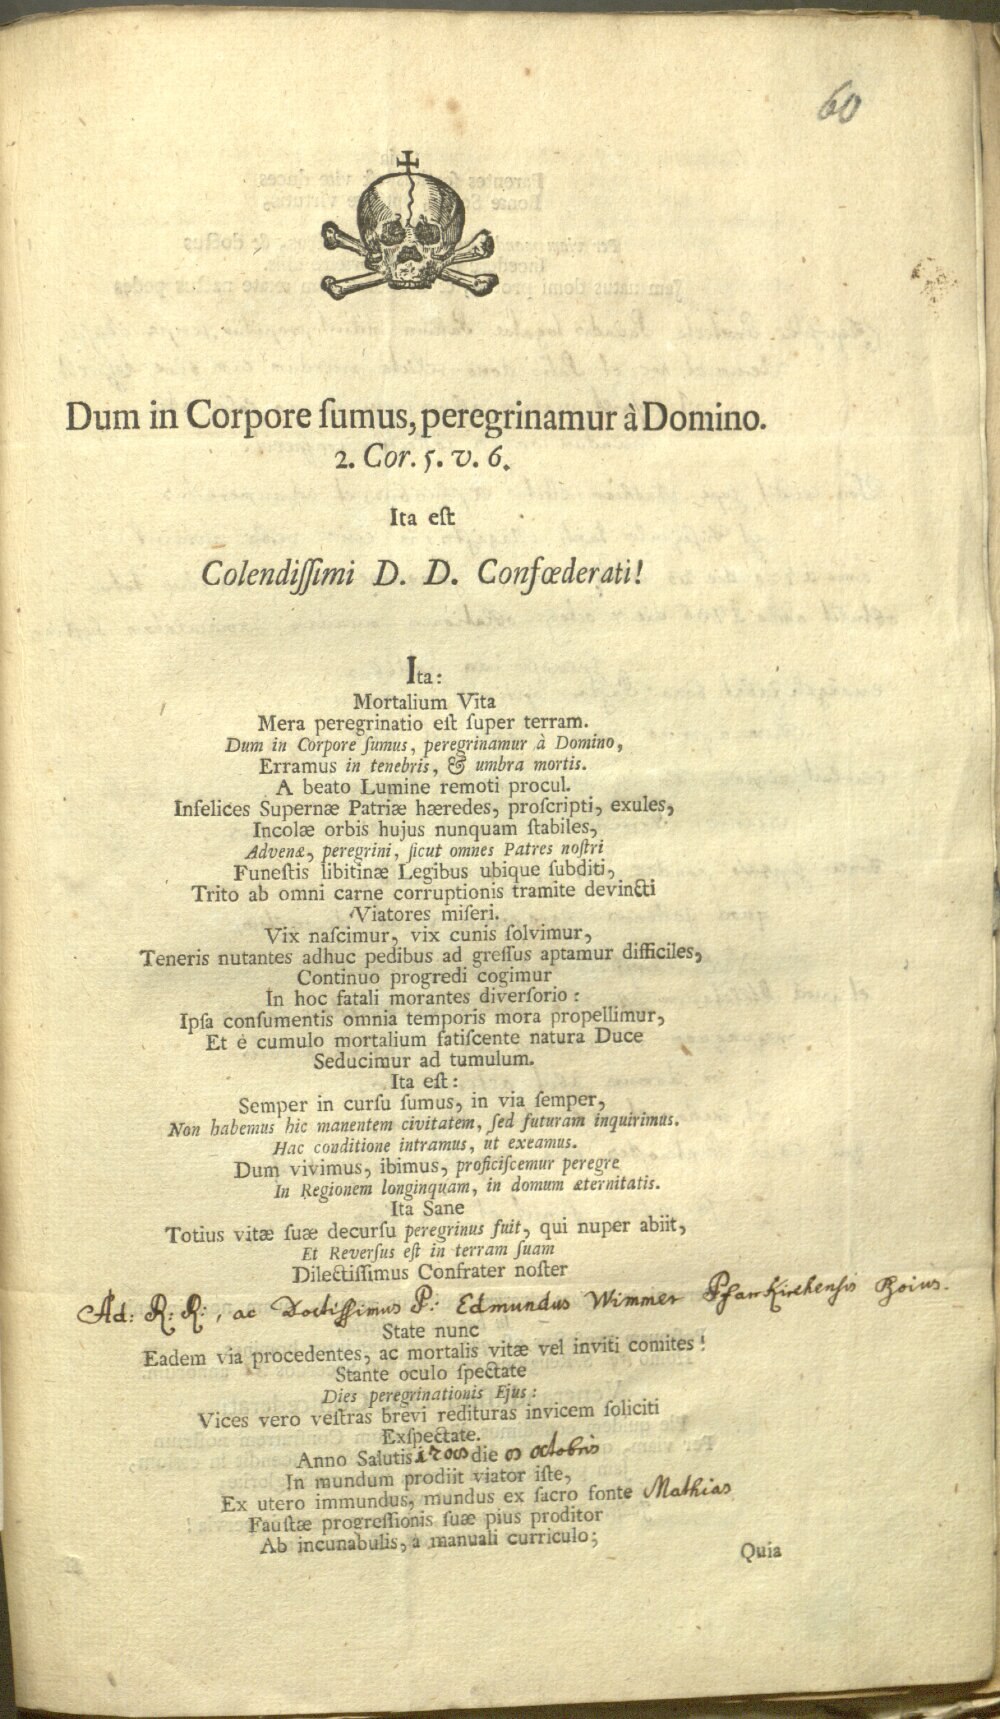 60
Dum in Corpore ſumus, peregrinamur à Domino.
2. Cor. 5. v. 6.
Ita eſt
Colendiſſimi D. D. Confœderati!
Ita:
Mortalium Vita
Mera peregrinatio eſt ſuper terram.
Dum in Corpore ſumus, peregrinamur à Domino,
Erramus in tenebris, & umbra mortis.
A beato Lumine remoti procul.
Infelices Supernæ Patriæ hæredes, proſcripti, exules,
Incolæ orbis hujus nunquam ſtabiles,
Advenæ, peregrini, ſicut omnes Patres noſtri
Funeſtis libitinæ Legibus ubique ſubditi,
Trito ab omni carne corruptionis tramite devincti
Viatores miſeri.
Vix naſcimur, vix cunis ſolvimur,
Teneris nutantes adhuc pedibus ad greſſus aptamur difficiles,
Continuo progredi cogimur
In hoc fatali morantes diverſorio:
Ipſa conſumentis omnia temporis mora propellimur,
Et è cumulo mortalium fatiſcente natura Duce
Seducimur ad tumulum.
Ita eſt:
Semper in curſu ſumus, in via ſemper,
Non habemus hic manentem civitatem, ſed futuram inquirimus.
Hac conditione intramus, ut exeamus.
Dum vivimus, ibimus, proficiſcemur peregre
In Regionem longinquam, in domum æternitatis.
Ita Sane
Totius vitæ ſuæ decurſu peregrinus fuit, qui nuper abiit,
Et Reverſus eſt in terram ſuam
Dilectiſſimus Confrater noſter
Ad: R: R:, ac Doctiſſimus P: Edmundus Wimmer Pfarrkirchenſis Boius.
State nunc
Eadem via procedentes, ac mortalis vitæ vel inviti comites!
Stante oculo ſpectate
Dies peregrinationis Ejus:
Vices vero veſtras brevi redituras invicem ſoliciti
Exſpectate.
Anno Salutis die octobris
In mundum prodiit viator iſte,
Ex utero immundus, mundus ex ſacro fonte Mathias
Fauſtæ progreſſionis ſuæ pius proditor
Ab incunabulis, à manuali curriculo;
Quia